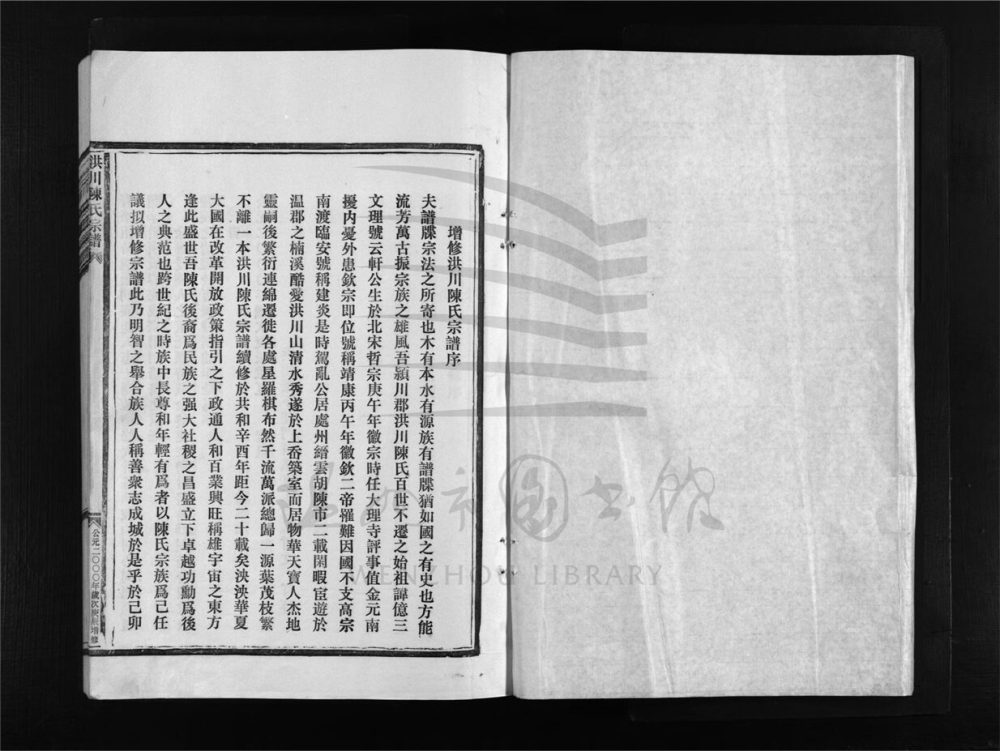 增修洪川陳氏宗譜序
夫譜牒宗法之所寄也木有本水有源族有譜牒猶如國之有史也方能
流芳萬古振宗族之雄風吾潁川郡洪川陳氏百世不遷之始祖諱億三
文理號云軒公生於北宋哲宗庚午年徽宗時任大理寺評事值金元南
擾内憂外患欽宗即位號稱靖康丙午年徽欽二帝罹難因國不支高宗
南渡臨安號稱建炎是時駕亂公居處州縉雲胡陳市二載閑暇宦遊於
温郡之楠溪酷愛洪川山清水秀遂於上岙築室而居物華天寶人杰地
靈嗣後繁衍連綿遷徙各處星羅棋布然千流萬派總歸一源葉茂枝繁
不離一本洪川陳氏宗譜續修於共和辛酉年距今二十載矣泱泱華夏
大國在改革開放政策指引之下政通人和百業興旺稱雄宇宙之東方
逢此盛世吾陳氏後裔爲民族之强大社稷之昌盛立下卓越功勳爲後
人之典范也跨世紀之時族中長尊和年輕有爲者以陳氏宗族爲己任
議拟增修宗譜此乃明智之舉合族人人稱善衆志成城於是乎於己卯
洪川陳氏宗譜
公元二〇〇〇年歲次庚辰增修
温州市图书館
WENZHOU LIBRARY